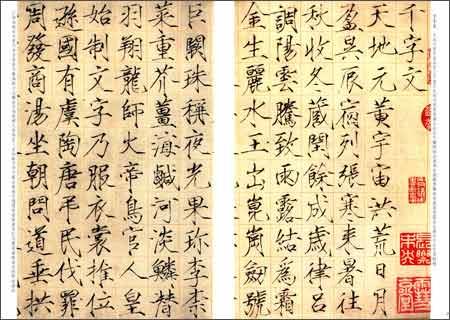 千字文
天地元黃宇宙洪荒日月
盈昃辰宿列張寒來暑往
秋收冬蔵閏餘成歲律呂
調陽雲騰致雨露結為霜
金生麗水玉出崑崗劒號
巨闕珠稱夜光果珍李柰
菜重芥薑海鹹河淡鱗潛
羽翔龍師火帝鳥官人皇
始制文字乃服衣裳推位
遜國有虞陶唐弔民伐罪
周發商湯坐朝問道垂拱